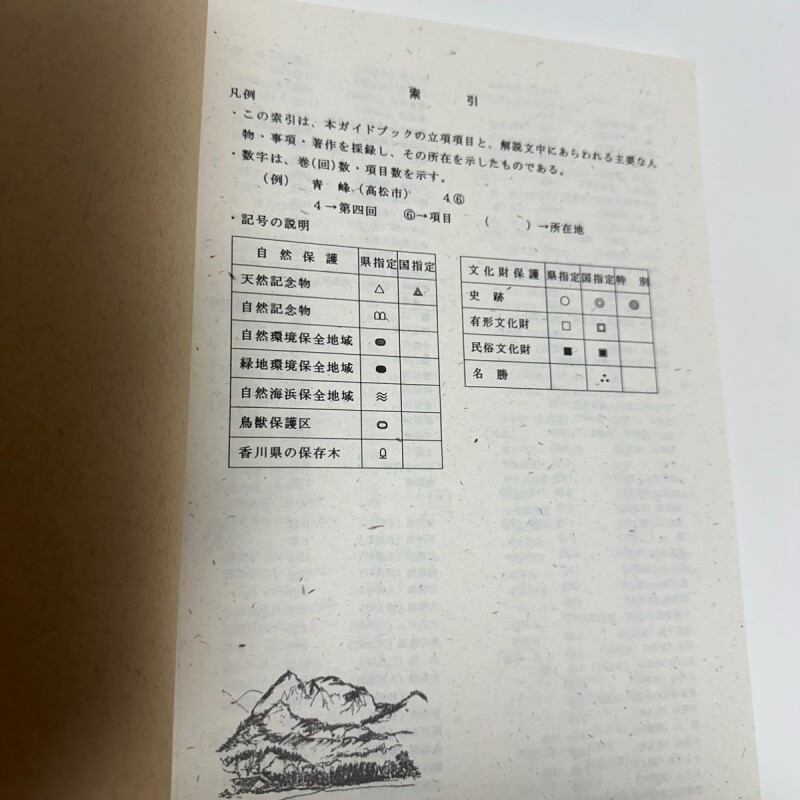 索 引
凡例
・この索引は、本ガイドブックの立項項目と、解説文中にあらわれる主要な人
物・事項・著作を採録し、その所在を示したものである。
・数字は、巻(回)数・項目数を示す。
(例) 青 峰(高松市) 4⑥
4→第四回 ⑥→項目 ( )→所在地
・記号の説明
自然保護 県指定 国指定
天然記念物 △
自然記念物
自然環境保全地域
緑地環境保全地域 ●
自然海浜保全地域
鳥獣保護区
香川県の保存木
文化財保護 県指定 国指定 特 別
史 跡 ○ ◎ ◉
有形文化財 □
民俗文化財 ■ ▣
名 勝 ∴